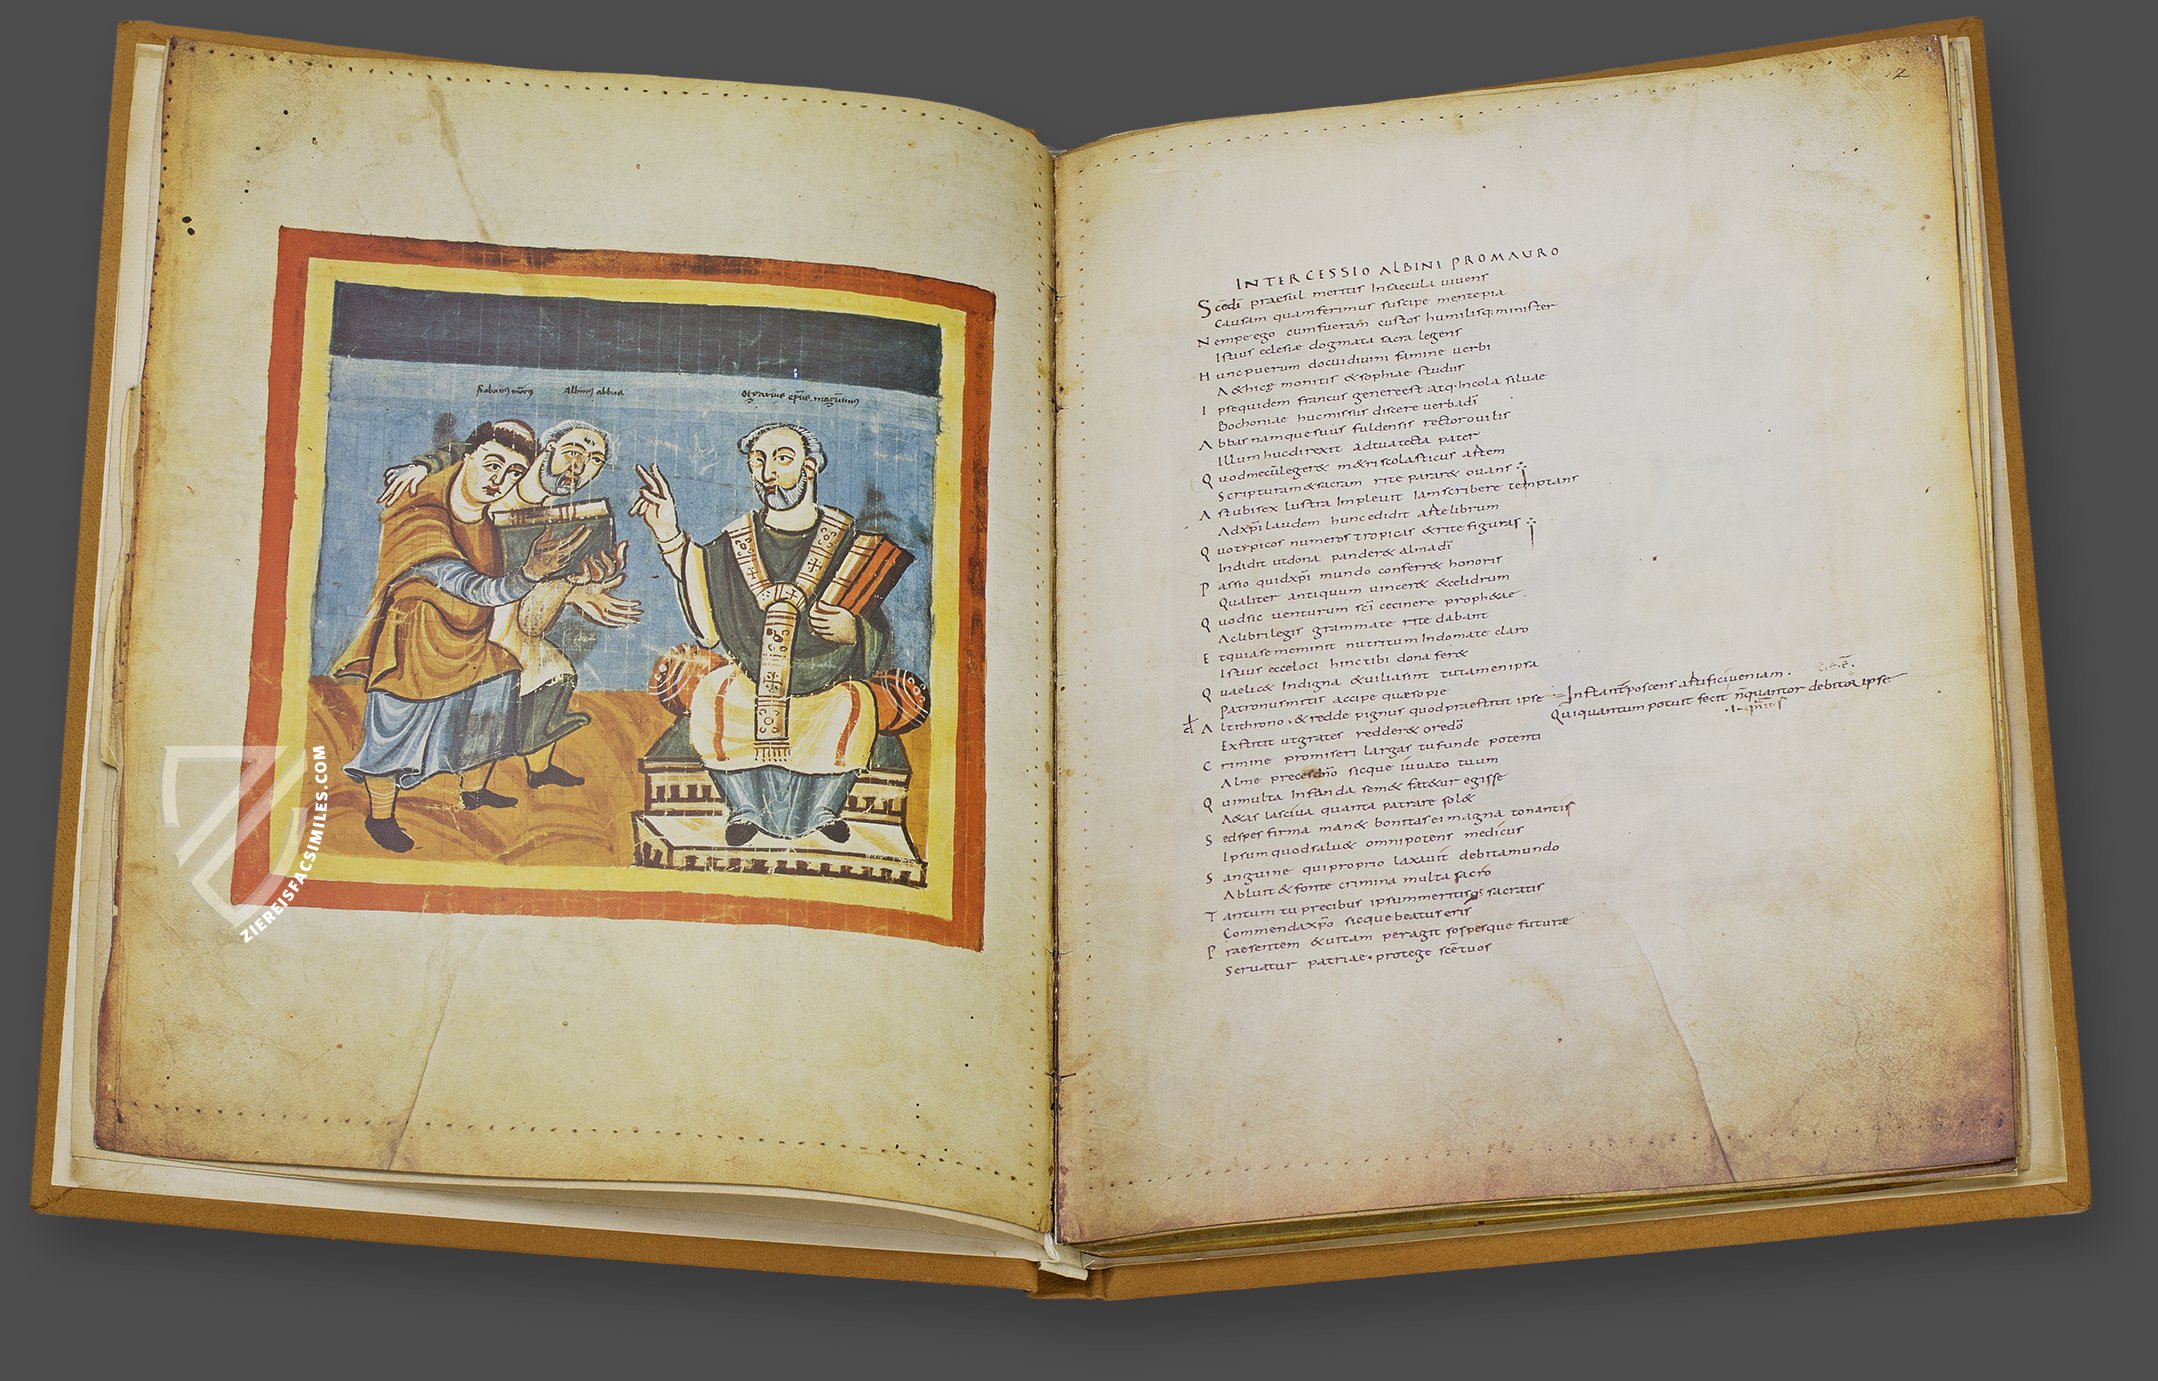 Rabanus maurus
Albinus abbas
Otgarius epus. magutinus
ZIEREISFACSIMILES.COM
2
INTERCESSIO ALBINI PROMAURO
Scēdī praesul meritis Insaecula uiuens
Causam quamferimus suscipe mentepia
Nempe ego cumfueram custos humilisq; minister
Istius eclesiæ dogmata sacra legens
Huncpuerum docuidiuini famine uerbi
A&hicę monitis &sophiae studiis
Ipsequidem francus genereest atq; Incola siluae
Bochoniae hucmissus discere uerbadī
Abbas namquesuus fuldensis rectorouilis
Illum hucdirexit adtuatecta pater
Quodmecūleger& m&riscolasticus artem
Scripturam&sacram rite parar& ouans
Astubisex lustra Impleuit Iamscribere temptans
Adxp̄i laudem huncedidit artelibrum
Quotypicos numeros tropicas &rite figuras
Indidit utdona pander& almadī
Passio quidxp̄i mundo conferr& honoris
Qualiter antiquum uincer& &celidrum
Quodsic uenturum scī cecinere proph&ae
Aclibrilegis grammate rite dabant
Etquiasememinit nutritum Indomate claro
Istius ecceloci hinctibi dona fer&
Quaelic& Indigna &uiliasint tutamenipsa
Patronusmitis accipe quæsopie
Altithrono, &redde pignus quodpraestitit ipse
Instant poscens artifici ueniam.
Quiquantum potuit fecit n̄quantor debitor ipse
Exstitit utgrates redder& oredō
Crimine promiseri largas tufunde potenti
Alme precesdn̄o sicque iuuato tuum
Quimulta Infanda sem& fat&ur egisse
A&as lasciua quanta patrare sol&
Sedspes firma man& bonitasei magna tonantis
Ipsum quodsalu& omnipotens medicus
Sanguine quiproprio laxauit debitamundo
Abluit &fonte crimina multa sacro
Tantum tu precibus ipsummeritisq; sacratis
Commendaxp̄o sicquebeatuseris
Praesentem &uitam peragit sospesque futuræ
Seruatur patriae. protege scētuos